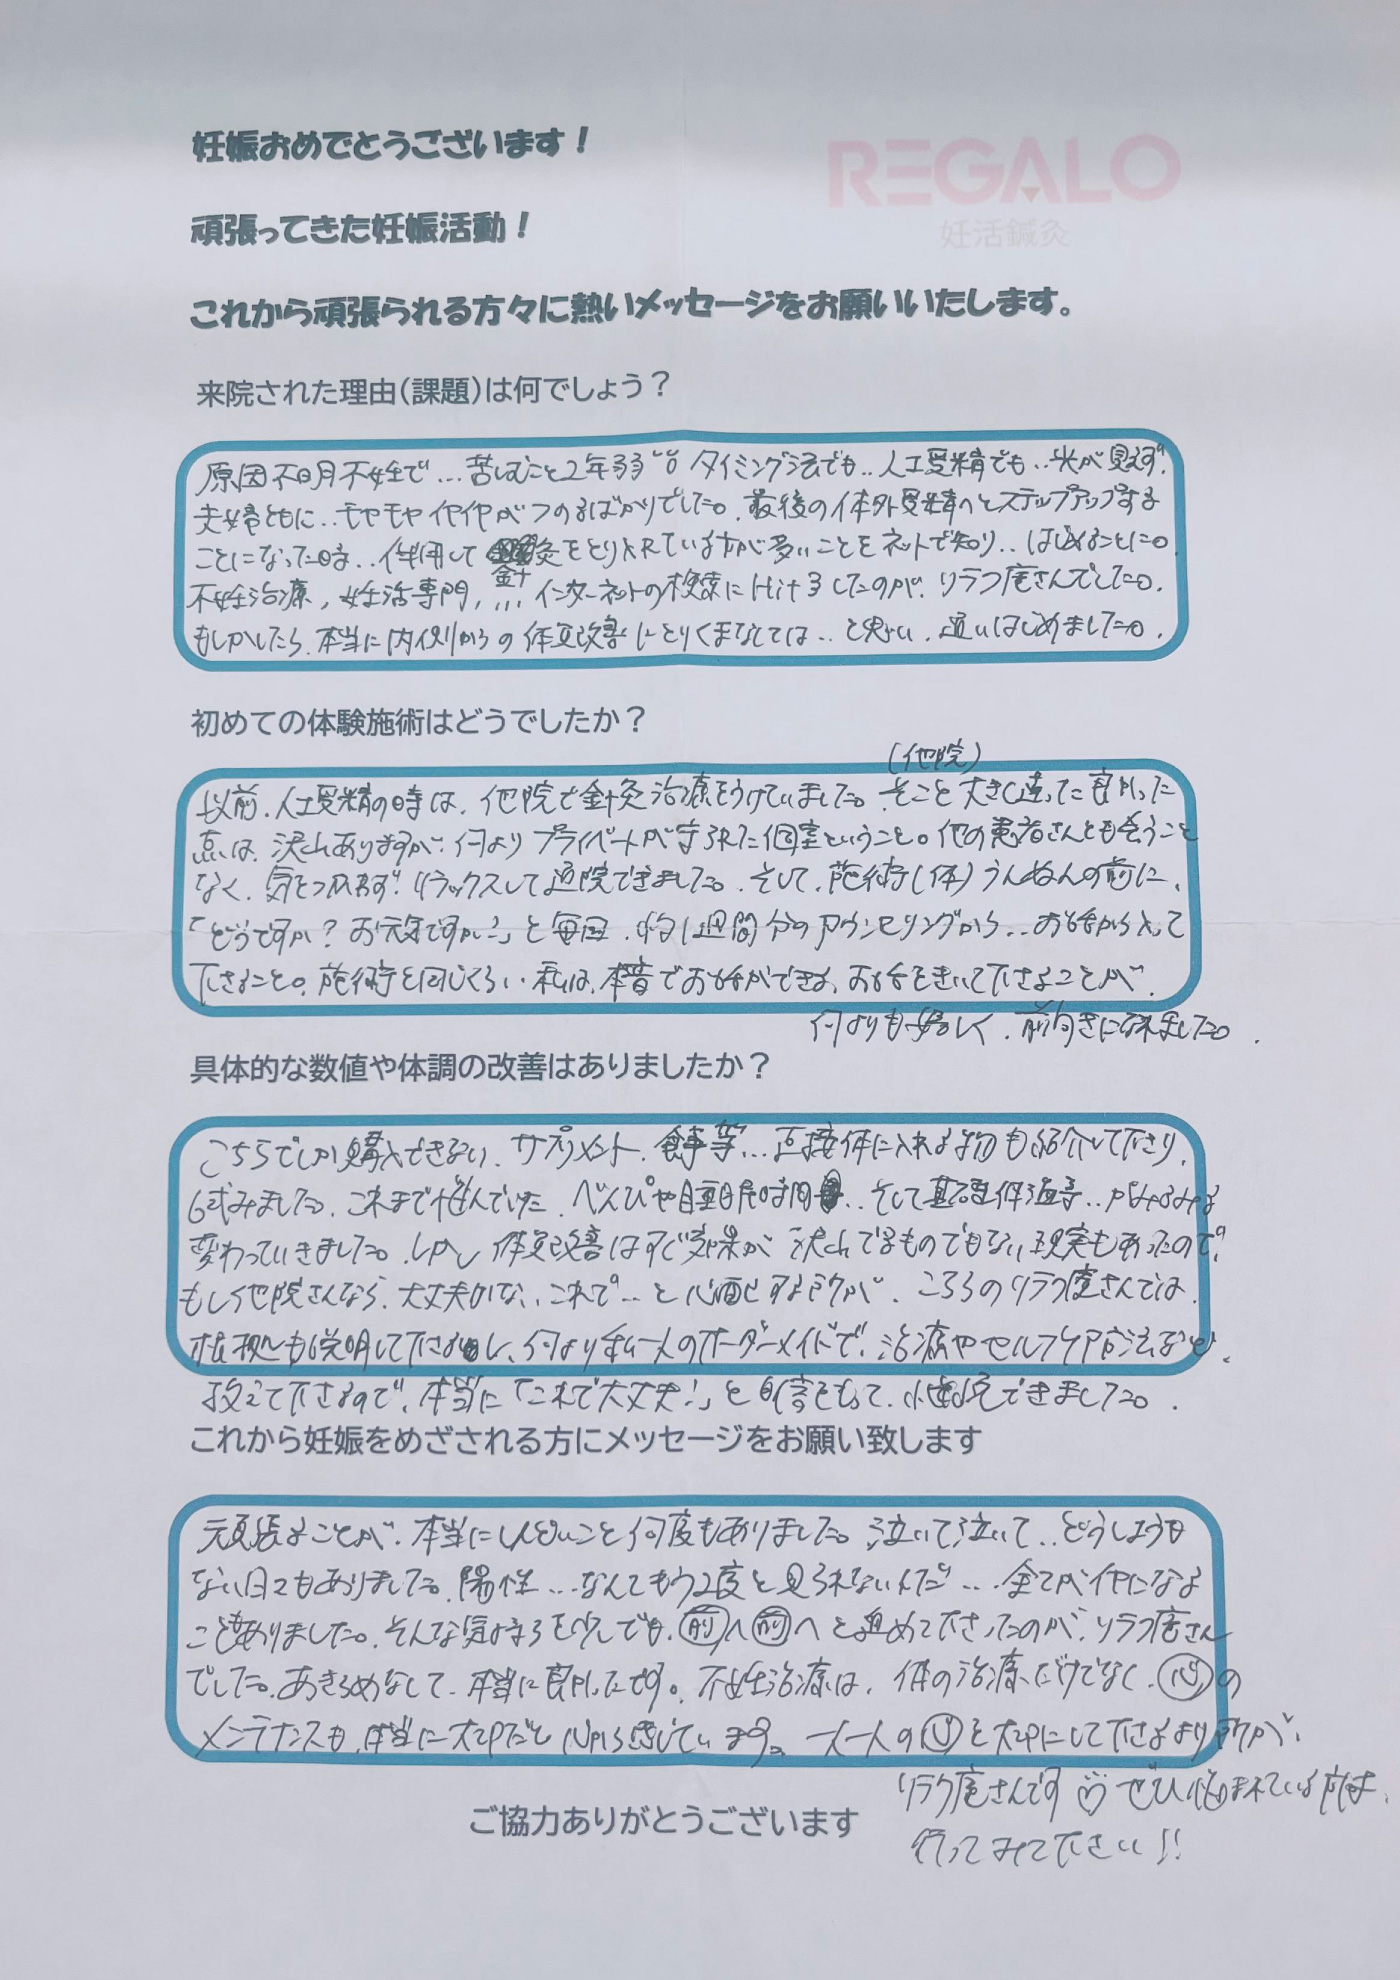 妊娠おめでとうございます！
REGALO
妊活鍼灸
頑張ってきた妊娠活動！
これから頑張られる方々に熱いメッセージをお願いいたします。
来院された理由(課題)は何でしょう？
原因不明不妊で…苦しむこと2年弱。タイミング法でも..人工受精でも..光が見えず。
夫婦ともに..モヤモヤイヤイヤがつのるばかりでした。最後の体外受精へとステップアップする
ことになった時..併用して針灸をとり入れている方が多いことをネットで知り..はじめることに。
不妊治療,妊活専門,…インターネットの検索にHitしたのが、リラク庵さんでした。
もしかしたら、本当に内側からの体質改善にとりくまなくては..と思い、通いはじめました。
初めての体験施術はどうでしたか？
(他院)
以前、人工受精の時は、他院で針灸治療をうけていました。そこと大きく違った良かった
点は、沢山ありますが、何よりプライベートが守られた個室ということ。他の患者さんとも会うこと
なく、気をつかわず、リラックスして通院できました。そして、施術(体)うんぬんの前に、
「どうですか？お元気ですか？」と毎回、約1週間分のカウンセリングから..お話から入って
下さること。施術と同じくらい私は、本音でお話ができる、お話をきいて下さることが、
何よりも嬉しく、前向きになれました。
具体的な数値や体調の改善はありましたか？
こちらでしか購入できない、サプリメント、食事等…直接体に入れる物も紹介して下さり、
試みました。これまで悩んでいた、べんぴや睡眠時間..そして基礎体温等..がみるみる
変わっていきました。しかし体質改善はすぐ効果が沢山でるものでもない現実もあったので、
もし他院さんなら、大丈夫かな..これで..と心配する所が、こちらのリラク庵さんでは、
根拠も説明して下さるし、何より私一人のオーダーメイドで、治療やセルフケア方法などを、
教えて下さるので、本当に「これで大丈夫！」と自信をもって、継続できました。
これから妊娠をめざされる方にメッセージをお願い致します
頑張ることが、本当にしんどいこと何度もありました。泣いて泣いて..どうしようも
ない日々もありました。陽性…なんてもう2度と見られないんだ…全てがイヤになる
こともありました。そんな気持ちを少しでも、前へ前へと進めて下さったのが、リラク庵さん
でした。あきらめなくて、本当に良かったです。不妊治療は、体の治療だけでなく、心の
メンテナンスも、本当に大切だと心から感じています。一人一人の心を大切にして下さる
リラク庵さんです ぜひ悩まれている方は、
行ってみて下さい!!
ご協力ありがとうございます